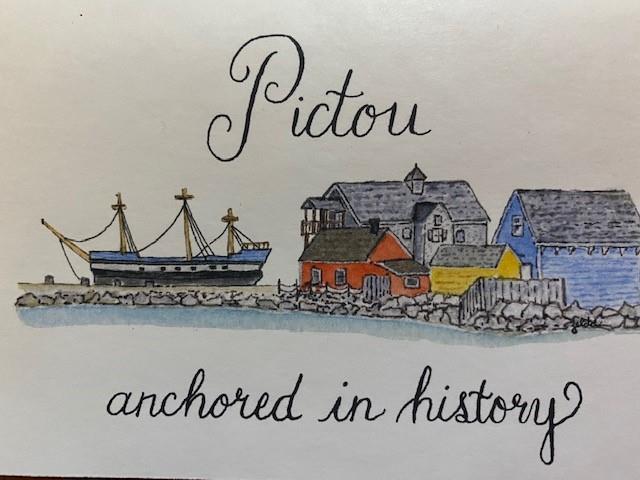 Pictou
anchored in history